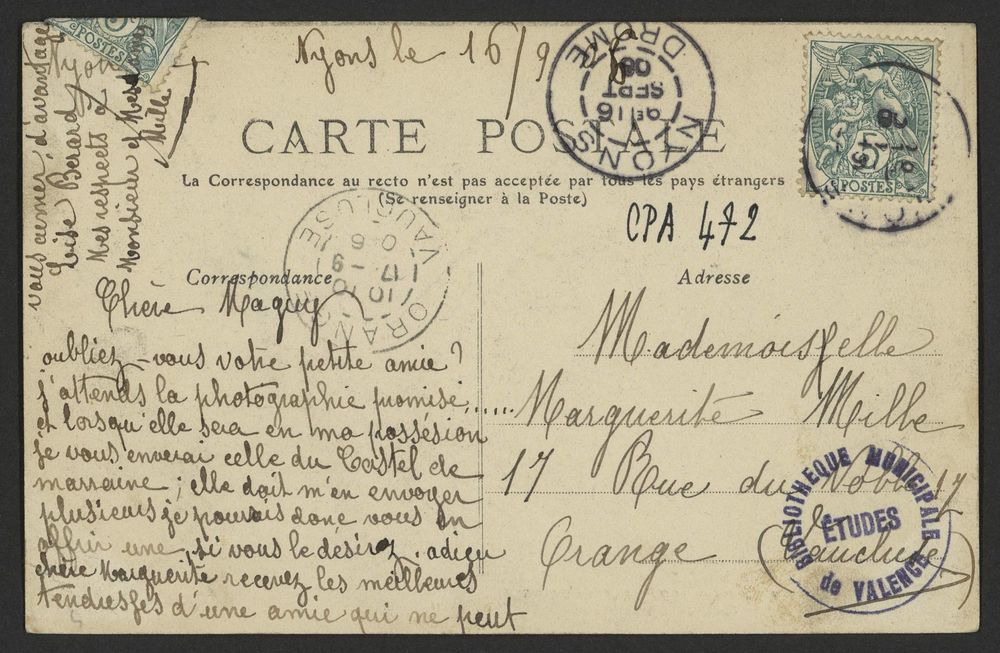 Nyons le 16/9 06
CARTE POSTALE
La Correspondance au recto n'est pas acceptée par tous les pays étrangers
(Se renseigner à la Poste)
CPA 472
Correspondance
Chère Maguy
oubliez-vous votre petite amie?
j'attends la photographie promise......
et lorsqu'elle sera en ma possésion
je vous enverai celle du Castel de
marraine; elle doit m'en envoyer
plusieurs je pourais donc vous en
offrir une, si vous le desirez. adieu
chère Marguerite recevez les meilleures
tendresses d'une amie qui ne peut
vous aimer d'avantage
Lise Berard Nyons
Mes respects à
Monsieur et Mesdames
Mille
Adresse
Mademoiselle
Marguerite Mille
17 Rue du Noble 17
Orange (Vaucluse)
NYONS DRÔME
16 SEPT 06
ORANGE VAUCLUSE
17 - 9
06
POSTES
5
POSTES
BIBLIOTHEQUE MUNICIPALE
ÉTUDES
de VALENCE